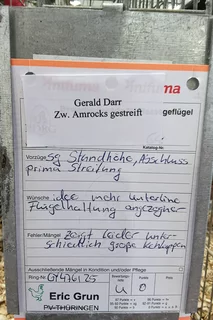 Gerald Darr
Zw. Amrocks gestreift
geflügel
Katalog-Nr.
Vorzüge sg Standhöhe, Abschluss
prima Streifung
Wünsche mehr Unterlinie
Flügelhaltung angezogner
Fehler/Mängel Zeigt leider unter-
schiedlich große Kehllappen
Ausschließende Mängel in Kondition und/oder Pflege
Ring-Nr.
Eric Grun
PV THÜRINGEN
U 0